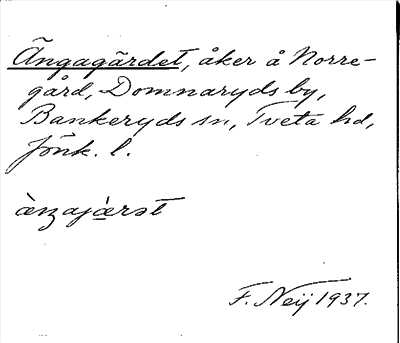 Ängagärdet, åker å Norre-
gård, Domnaryds by,
Bankeryds sn, Tveta hd,
Jönk. l.
ànzajàrət
F. Neij 1937.